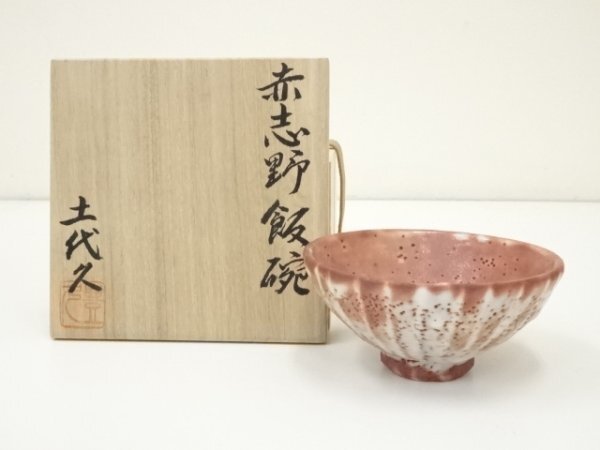 赤志野 飯碗
土代久